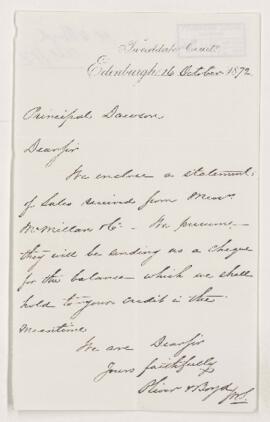 Tweeddale Court,
Edinburgh, 26 October 1872
Principal Dawson
Dear Sir
We enclose a statement
of Sales received from Messrs.
McMillan & Co - We presume
they will be sending us a cheque
for the balance which we shall
hold to your credit in the
meantime
We are Dear Sir
Yours faithfully
Oliver & Boyd